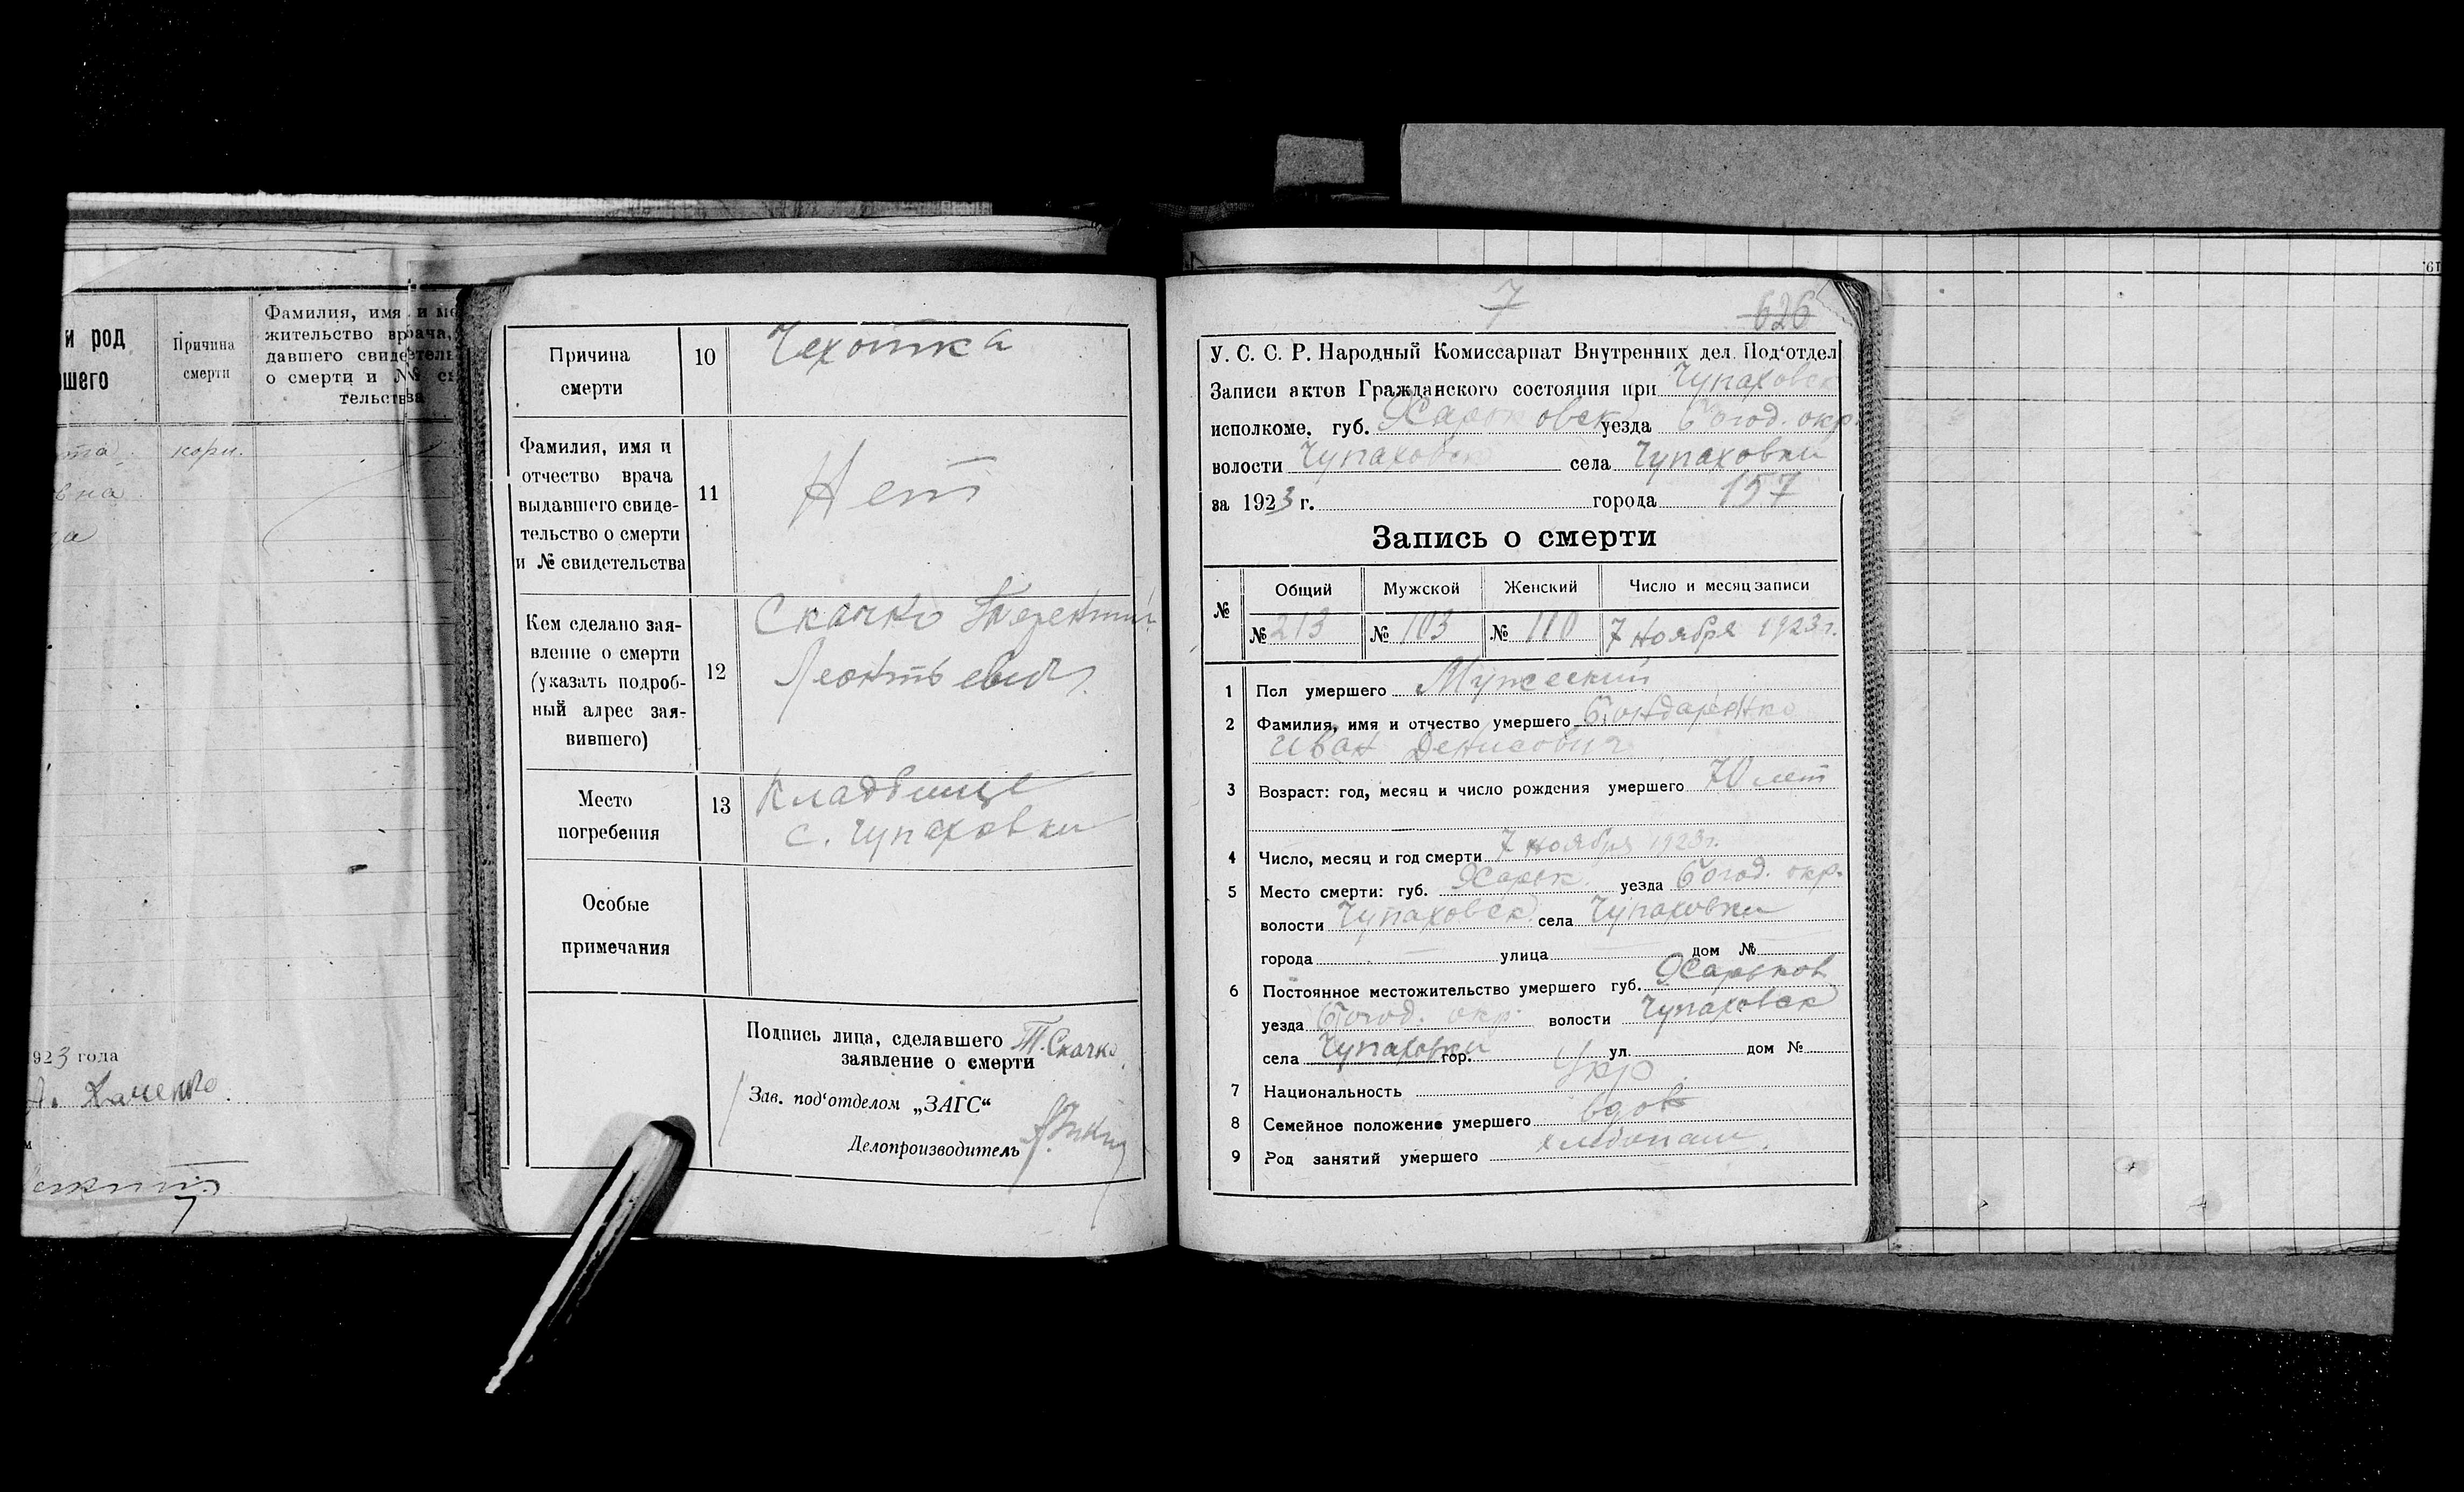 и род
шего
Причина
смерти
Фамилия, имя и ме
жительство врача,
давшего свидетель
о смерти и №
тельства
кори.
вна
1923 года
Причина
смерти
10
Чехотка
Фамилия, имя и
отчество врача
выдавшего свиде-
тельство о смерти
и № свидетельства
11
Нет
Кем сделано зая-
вление о смерти
(указать подроб-
ный адрес зая-
вившего)
12
Скачко Терентий
Леонтьевич
Место
погребения
13
Кладвище
с. Чупаховки
Особые
примечания
Подпись лица, сделавшего Т. Скачко
заявление о смерти
Зав. под‘отделом „ЗАГС“
Делопроизводитель
7
626
У. С. С. Р. Народный Комиссариат Внутренних дел. Под‘отдел
Записи актов Гражданского состояния при Чупаховск
исполкоме, губ. Харьковск уезда Богод. окр.
волости Чупаховск села Чупаховки
за 1923 г. города 157
Запись о смерти
№ Общий Мужской Женский Число и месяц записи
№ 213 № 103 № 110 7 ноября 1923 г.
1 Пол умершего Мужеский
2 Фамилия, имя и отчество умершего Бондаренко
Иван Денисович
3 Возраст: год, месяц и число рождения умершего 70 лет
4 Число, месяц и год смерти 7 ноября 1923 г.
5 Место смерти: губ. Харьк. уезда Богод. окр.
волости Чупаховск. села Чупаховки
города — улица дом №
6 Постоянное местожительство умершего губ. Харьков
уезда Богод. окр. волости Чупаховск
села Чупаховки гор. ул. дом №
7 Национальность Укр
8 Семейное положение умершего вдов
9 Род занятий умершего хлебопаш.